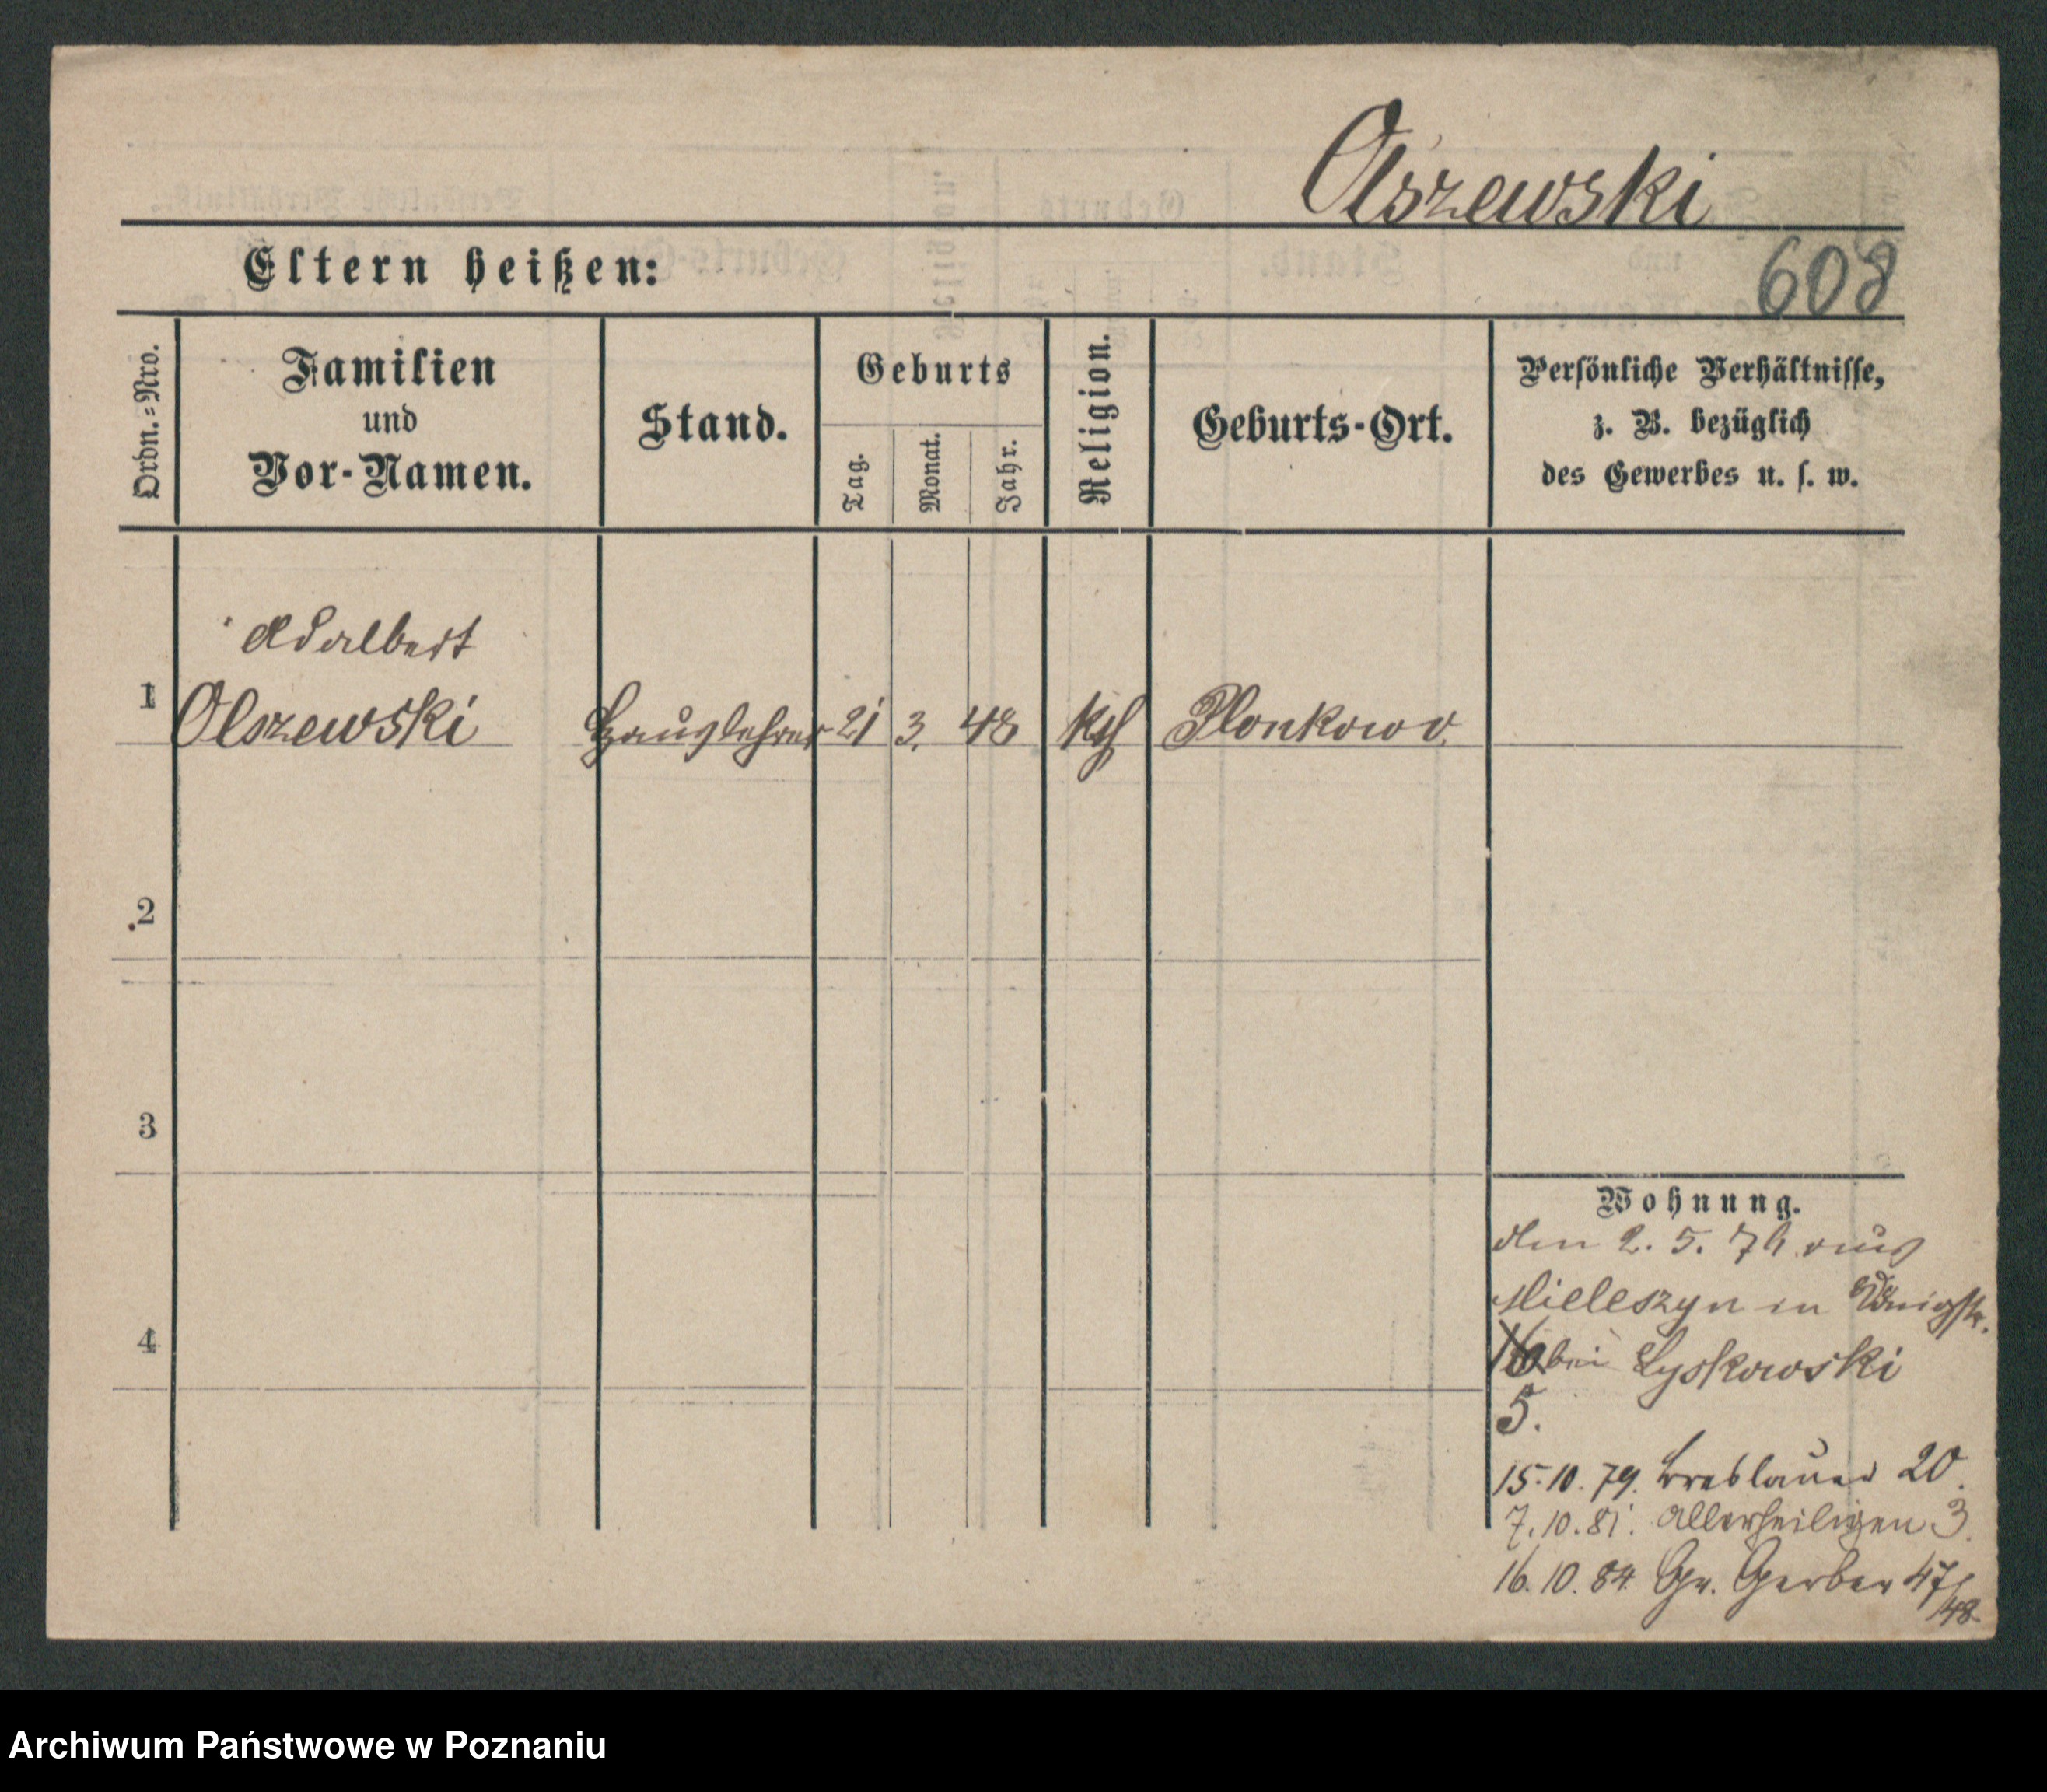 Olszewski
608
Eltern heißen:
Ordn.=Nro.
Familien
und
Vor-Namen.
Stand.
Geburts
Tag.
Monat.
Jahr.
Religion.
Geburts-Ort.
Persönliche Verhältnisse,
z. B. bezüglich
des Gewerbes u. s. w.
Adalbert
1 Olszewski Hauslehrer 21 3. 48 kth Plonkowo.
2
3
4
Wohnung.
den 2. 5. 76 aus
Mieleszyn in Königstr.
16 bei Lyskowski
5.
15.10.79. Breslauer 20.
7.10.81. Allerheiligen 3.
16.10.84. Gr. Gerber 47/48.
Archiwum Państwowe w Poznaniu